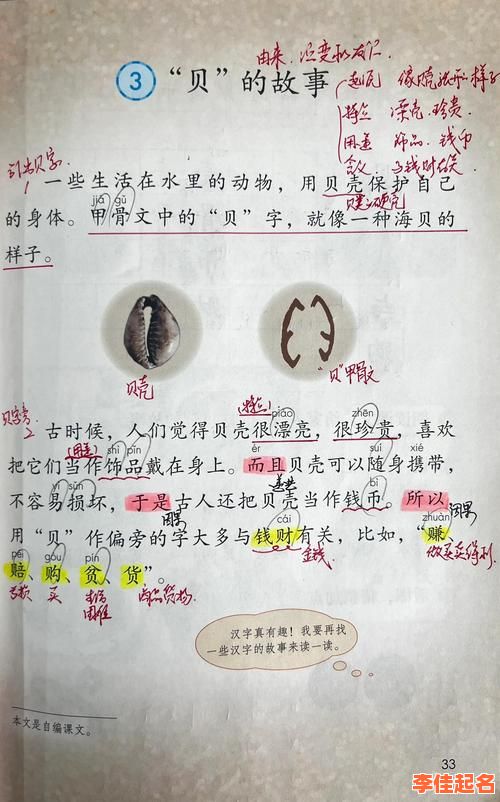 由来、演变和发展
③ “贝”的故事
起源 像贝壳张开样子
特点 漂亮 珍贵
用途 饰品、钱币
含义 与钱财有关
引出贝字
1
一些生活在水里的动物，用贝壳保护自己
贝类的硬壳
jiǎ gǔ
的身体。甲骨文中的“贝”字，就像一种海贝的
样子。
贝壳
“贝”甲骨文
2
(特点) piào zhēn
古时候，人们觉得贝壳很漂亮，很珍贵，喜欢
(用途) shì pǐn ér suí xié
把它们当作饰品戴在身上。而且贝壳可以随身携带，
yì sǔn bì
不容易损坏，于是古人还把贝壳当作钱币。所以
因果 cái zhuàn 因果
用“贝”作偏旁的字大多与钱财有关，比如，“赚、
金钱 做买卖得利
péi gòu pín
赔、购、贫、货”。
买 困难
汉字真有趣！我要再找
一些汉字的故事来读一读。
本文是自编课文。
33
李佳起名